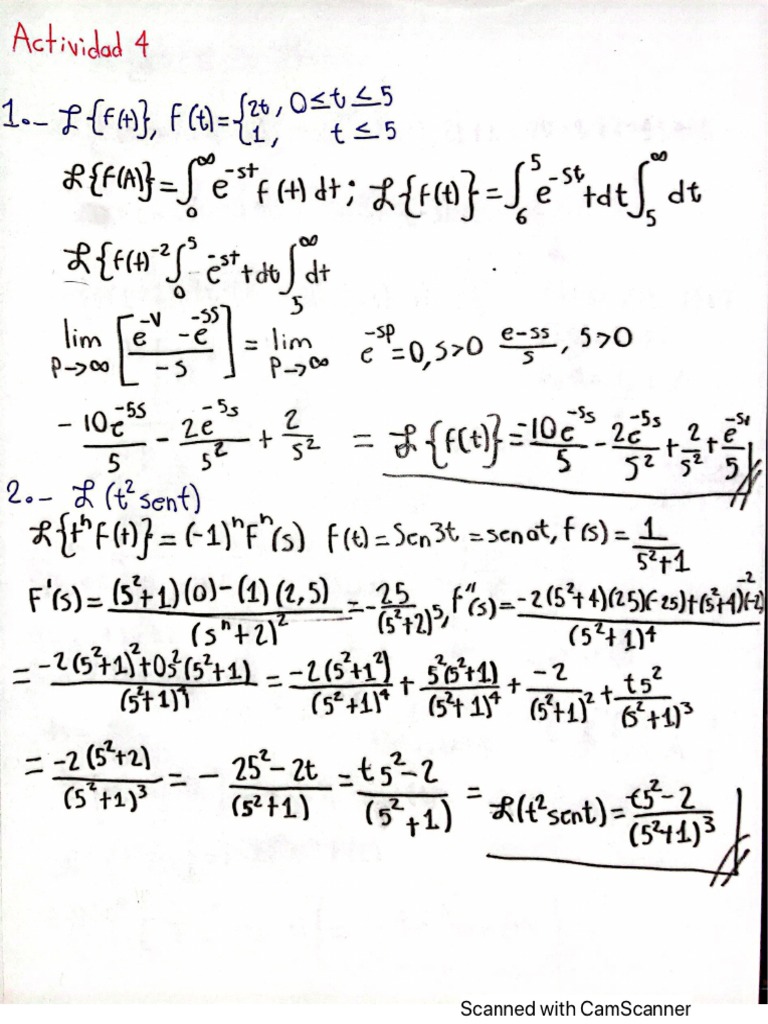 Actividad 4
1.- ℒ{f(t)}, f(t)={2t, 0≤t≤5
{1, t≤5
ℒ{f(A)}=∫₀^∞ e^-st f(t)dt; ℒ{f(t)}=∫₆^5 e^-st tdt∫₅^∞ dt
ℒ{f(t)^-2∫₀^5 e^-st tdt∫₅^∞ dt
lim P→∞ [(e^-v -e^-ss)/-s] = lim P→∞ e^-sp=0, s>0 e-ss/s, 5>0
- 10e^-5s/5 - 2e^-5s/5² + 2/s² = ℒ{f(t)}=-10e^-5s/5 - 2e^-5s/5² + 2/s² + e^-st/5
2.- ℒ(t² sent)
ℒ{t^n f(t)}=(-1)^n F^n(s) f(t)=Sen3t=senat, f(s)=1/(5²+1)
F'(s)=((5²+1)(0)-(1)(2,5))/(s^n+2)²=-25/(5²+2)^5, f''(s)=(-2(5²+4)(25)(-25)+(5²+1)^-2(-2)/(5²+1)⁴
=(-2(5²+1)²+0s²(5²+1))/(5²+1)⁴=-2(5²+1²)/(5²+1)⁴+5²(5²+1)/(5²+1)⁴+-2/(5²+1)²+t5²/(5²+1)³
=-2(5²+2)/(5²+1)³=-(25²-2t)/(5²+1)=(t5²-2)/(5²+1)=ℒ(t² sent)=(t5²-2)/(5²+1)³
Scanned with CamScanner